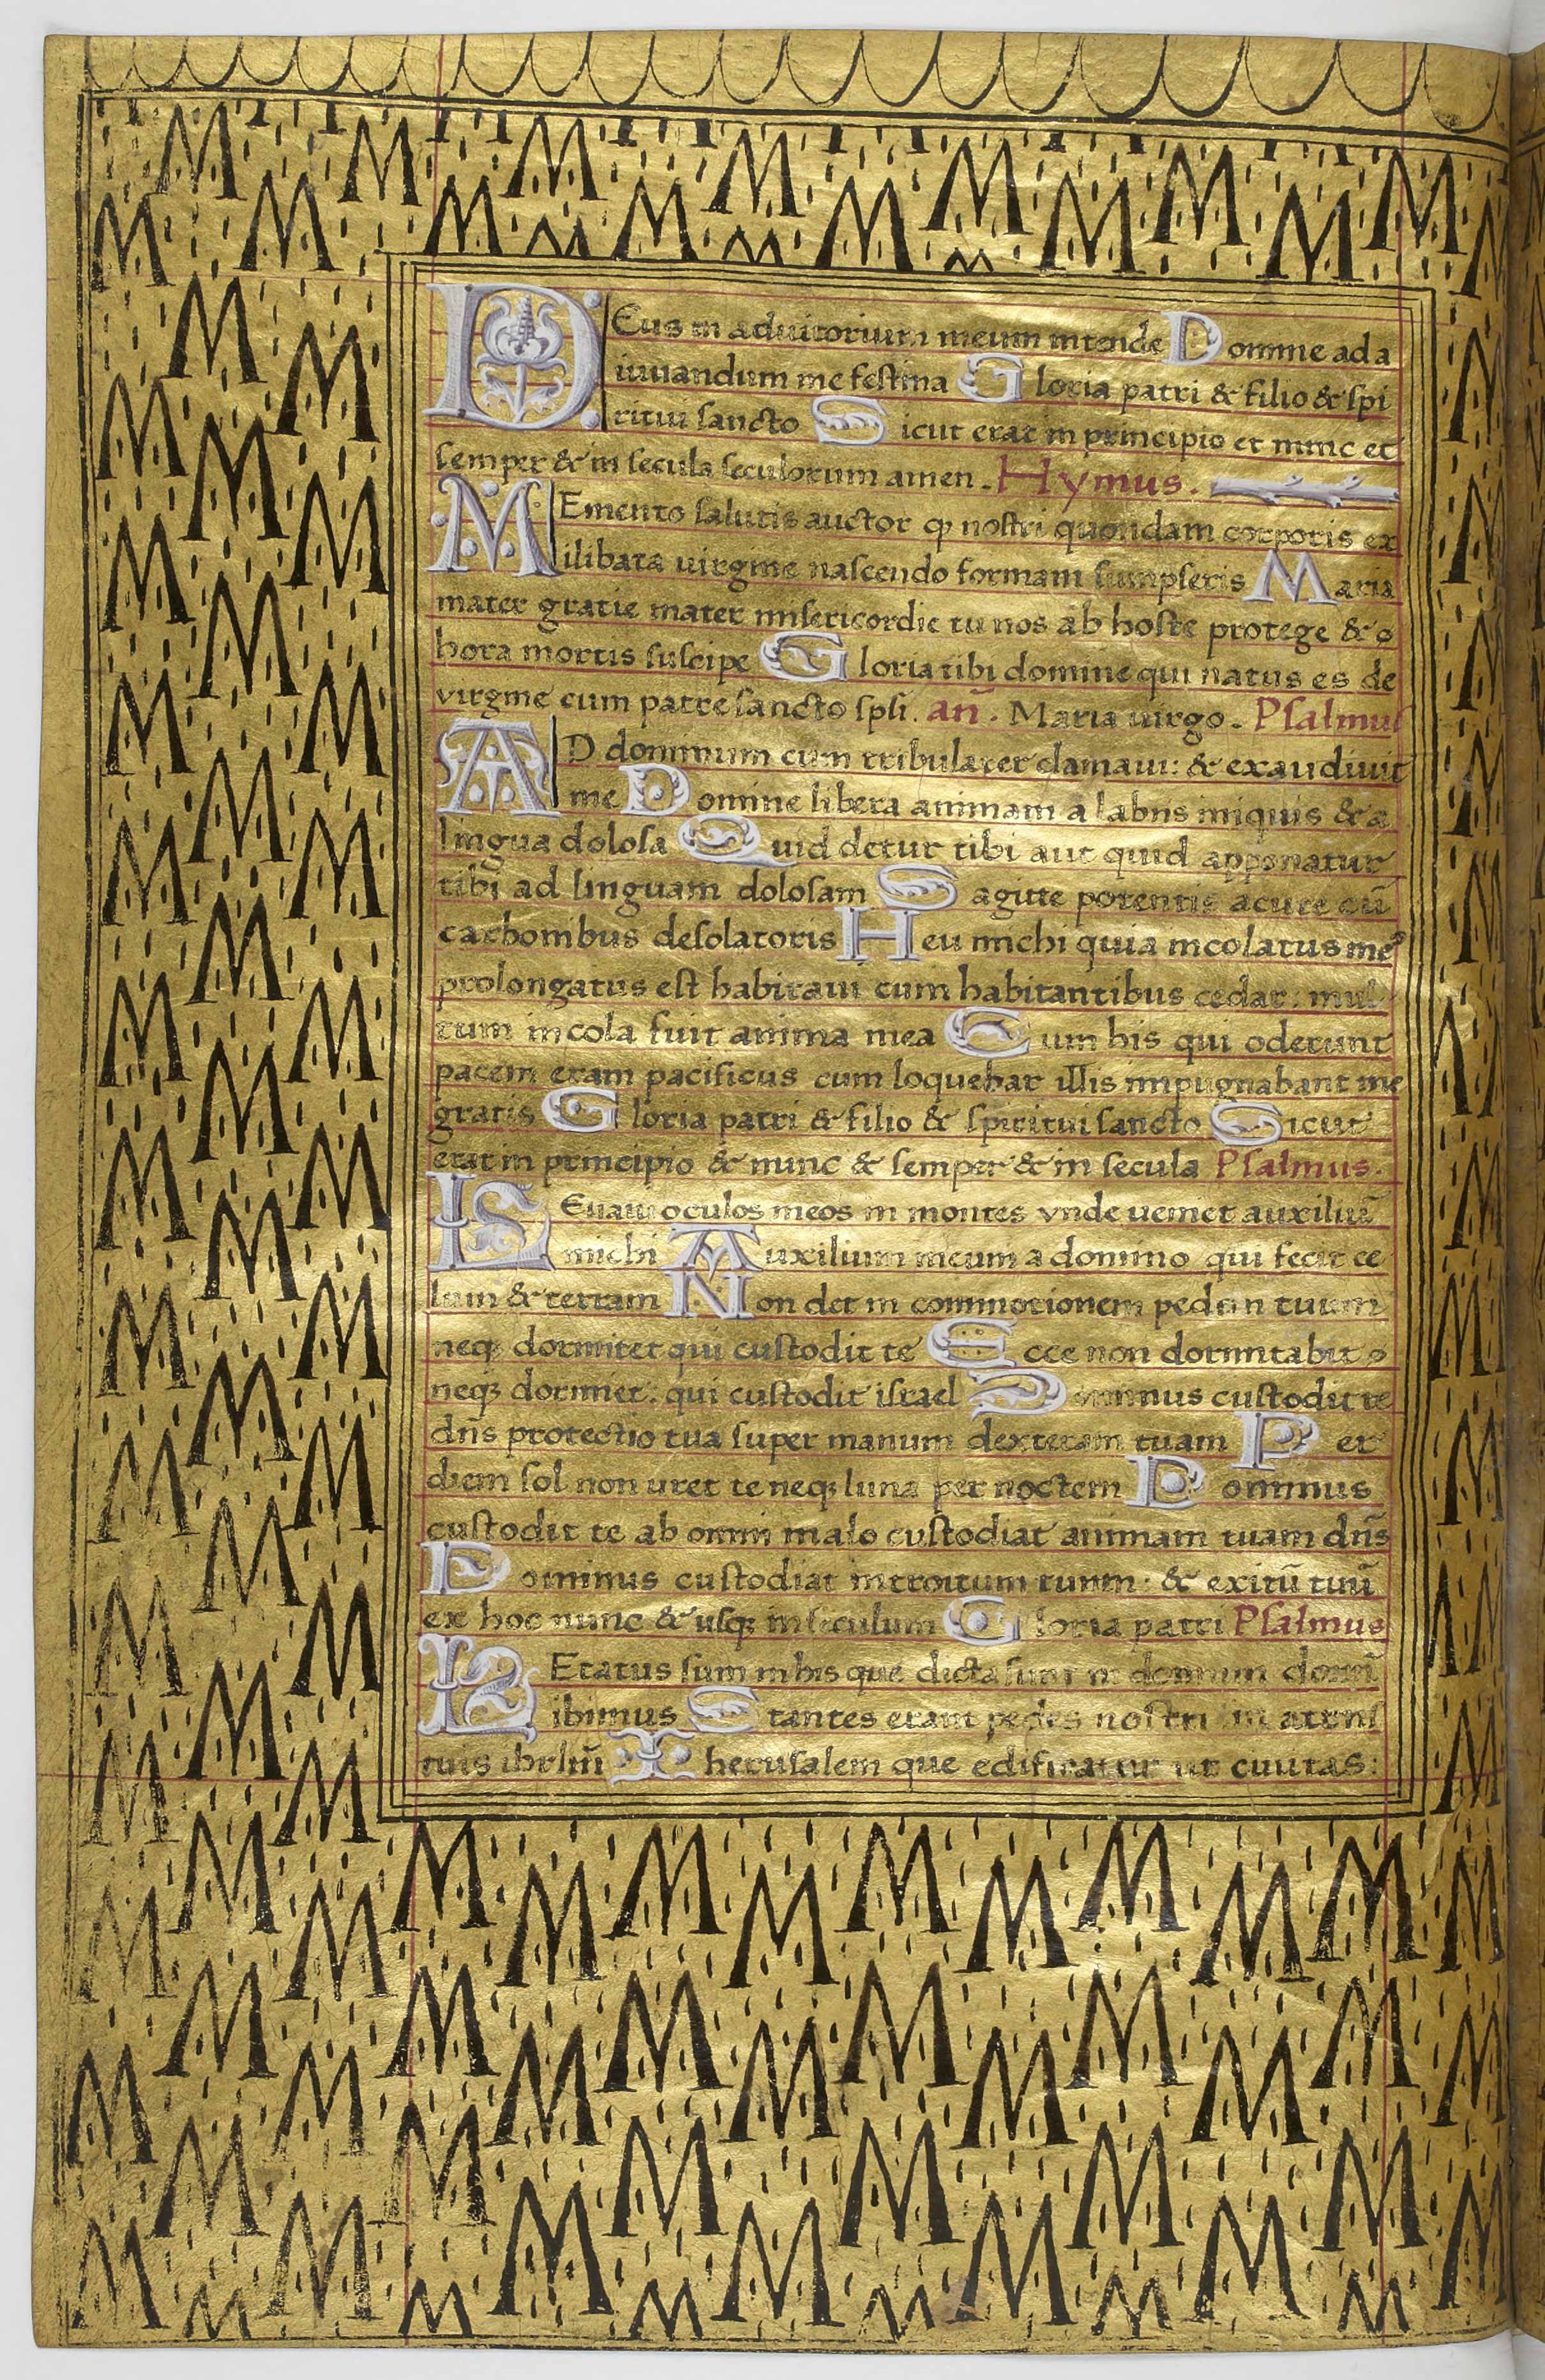 DEus in adiutorium meum intende Domine ad a
iuuandum me festina Gloria patri & filio & spi
ritui sancto Sicut erat in principio et nunc et
semper & in secula seculorum amen. Hymus.
MEmento salutis auctor qꝫ nostri quondam corporis ex
ilibata uirgine nascendo formam sumpseris Maria
mater gratie mater misericordie tu nos ab hoste protege &
hora mortis suscipe Gloria tibi domine qui natus es de
virgine cum patre sancto spū. añ. Maria uirgo. Psalmus
AD dominum cum tribularer clamaui: & exaudiuit
me Domine libera animam a labiis iniquis & a
lingua dolosa Quid detur tibi aut quid apponatur
tibi ad linguam dolosam Sagitte potentis acute cū
carbonibus desolatoris Heu michi quia incolatus meꝰ
prolongatus est habitaui cum habitantibus cedar: mul
tum incola fuit anima mea Cum his qui oderunt
pacem eram pacificus cum loquebar illis impugnabant me
gratis Gloria patri & filio & spiritui sancto Sicut
erat in principio & nunc & semper & in secula Psalmus.
LEuaui oculos meos in montes vnde ueniet auxiliū
michi Auxilium meum a domino qui fecit ce
lum & terram Non det in commotionem pedem tuum
neqꝫ dormitet qui custodit te Ecce non dormitabit
neqꝫ dormiet: qui custodit israel Dominus custodit te
dñs protectio tua super manum dexteram tuam Per
diem sol non uret te neqꝫ luna per noctem Dominus
custodit te ab omni malo custodiat animam tuam dñs
Dominus custodiat introitum tuum: & exitū tuū
ex hoc nunc & usqꝫ in seculum Gloria patri Psalmus
LEtatus sum in his que dicta sunt in domum domī
ibimus Stantes erant pedes nostri in atriis
tuis ihrlm̄ Iherusalem que edificatur ut ciuitas: